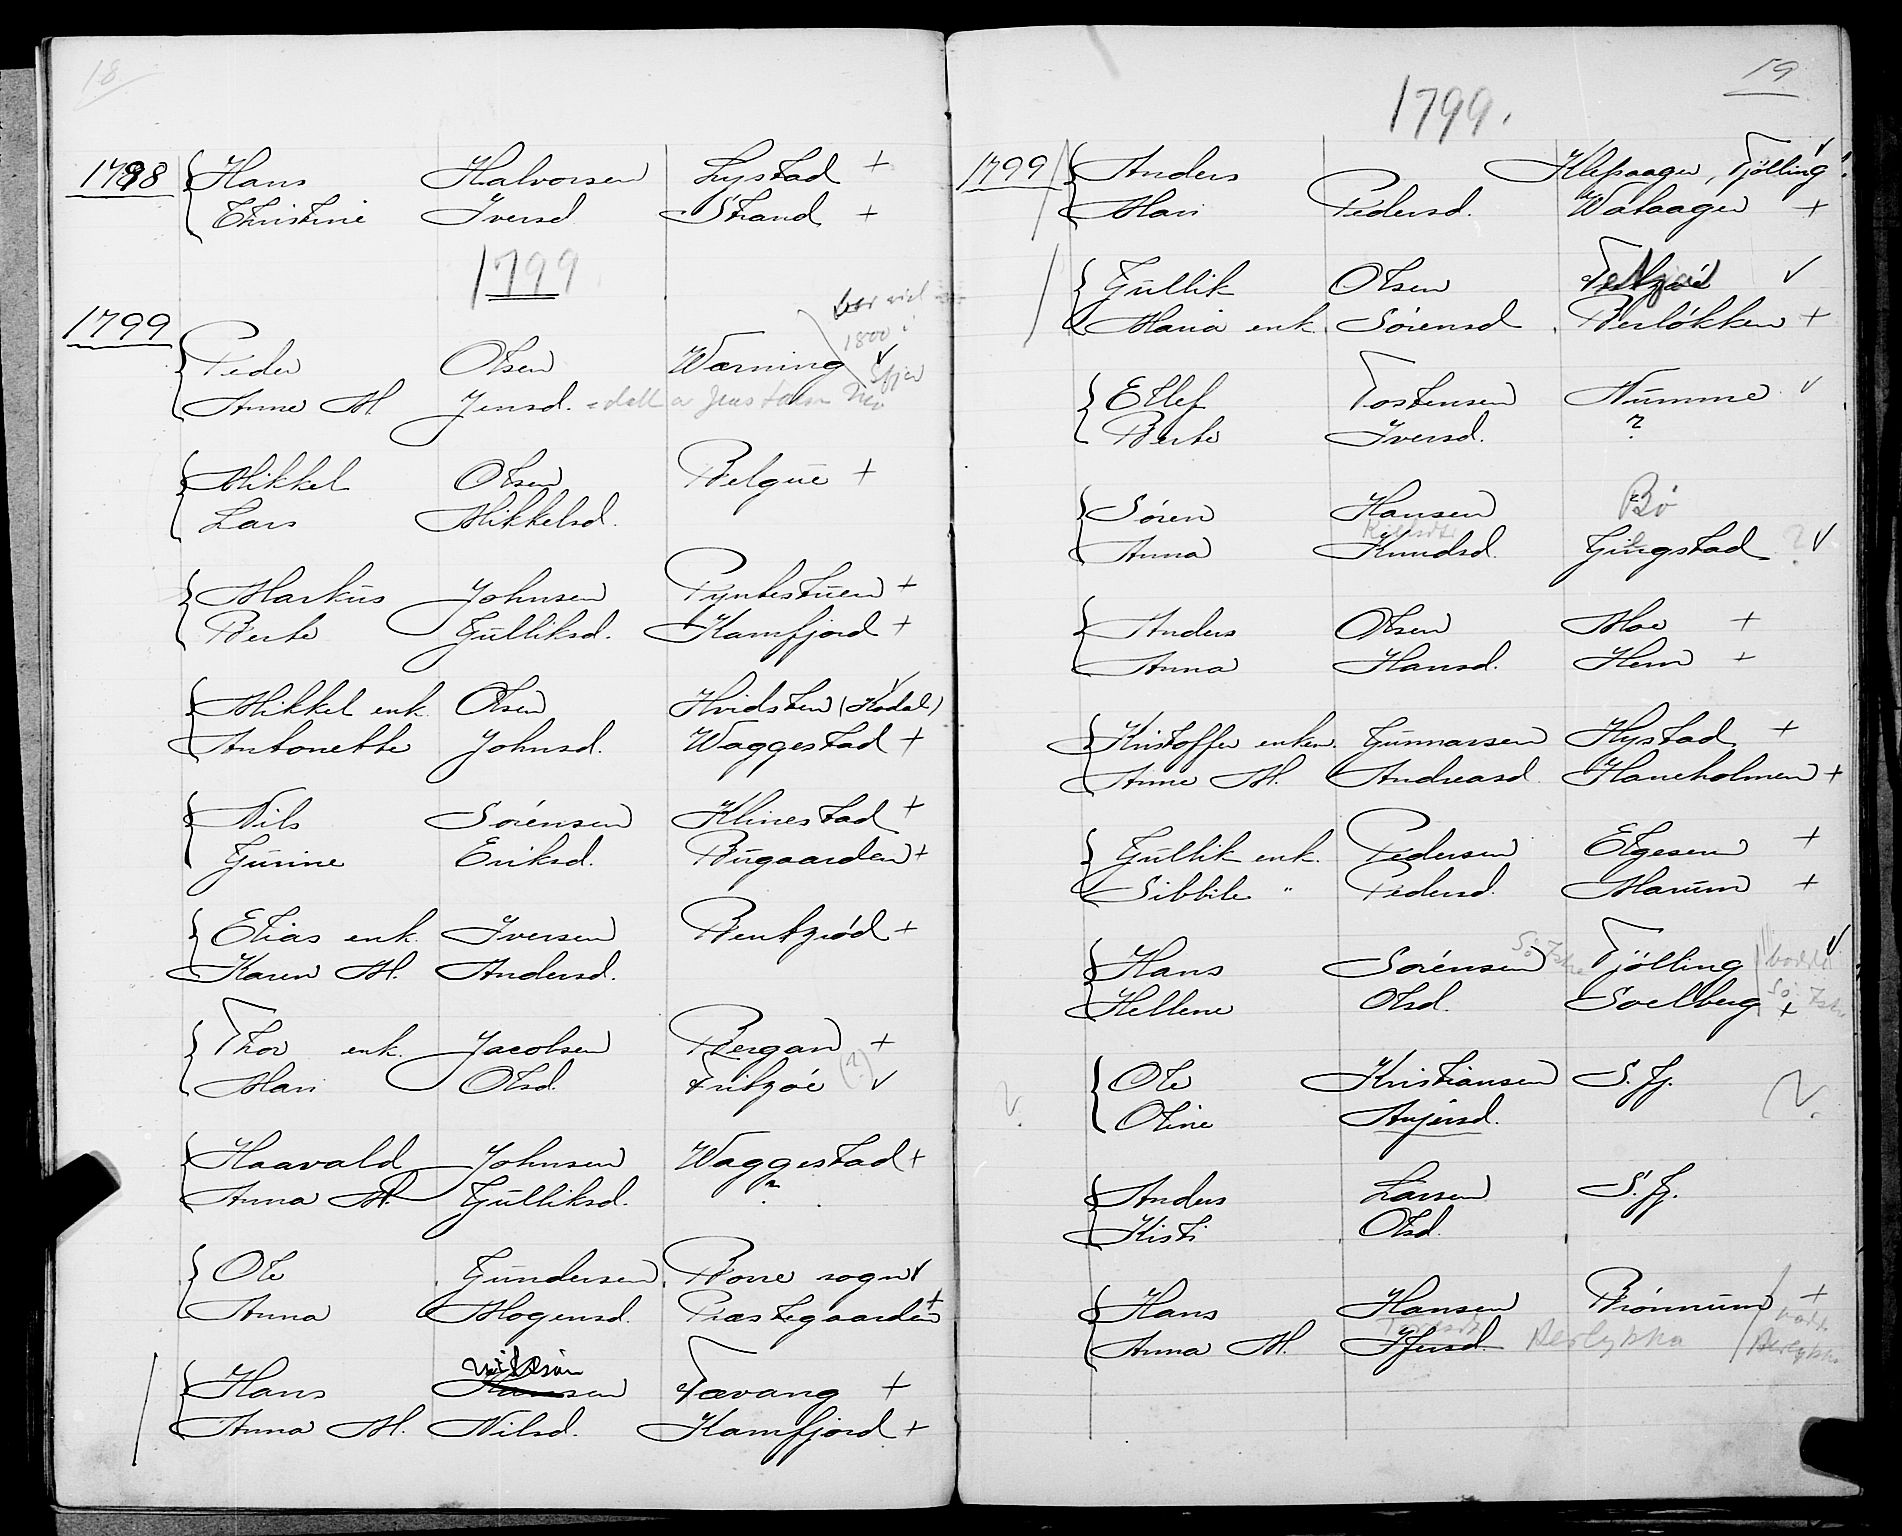 18
1798 Hans Halvorsen Lystad +
Christine Iversd Strand +
1799
1799
1800 i
Peder Olsen Wærning ✓
Anne M Jensd.
Mikkel Olsen Belgue +
Lars Mikkelsd.
Markus Johnsen Pyntestuen +
Berte Gulliksd. Kamfjord +
Mikkel enk. Olsen Hvidsten (Kodal) ✓
Antonette Johnsd. Waggestad +
Nils Sørensen Klinestad +
Gurine Eriksd. Bugaarden +
Elias enk. Iversen Bentzrød +
Karen M. Andersd.
Thor enk. Jacobsen Bergan +
Mari Olsd. Fritzøe (?) ✓
Haavald Johnsen Waggestad +
Anna M. Gulliksd. ?
Ole Gundersen Borre sogn ✓
Anna Mogensd. Præstegaarden +
Nilssøn
Hans Hansen Tævang +
Anna M. Nilsd. Kamfjord +
19
1799.
1799 Anders Klepaager, Tjølling ✓
Mari Pedersd. Wataager +
Gullik Olsen ✓
Maria enk. Sørensd Berløkken +
Ellef Tostensen Numme ✓
Berte Iversd. ?
Søren Hansen Bø
Anna Knudsd. Gingstad ? ✓
Anders Olsen Moe +
Anna Hansd. Hem +
Kristoffer enkem. Gunnarsen Hystad +
Anne M. Andreasd. Haneholmen +
Gullik enk. Pedersen Elgesem +
Sibbile " Pedersd. Marum +
Hans Sørensen Tjølling ✓
Hellene Olsd. Soelberg +
Ole Kristiansen S. fj. ?
Oline Anjersd.
Anders Larsen S. fj.
Kisti Olsd.
Hans Hansen Brønnum +
Anna M. Ifversd. Berlykka